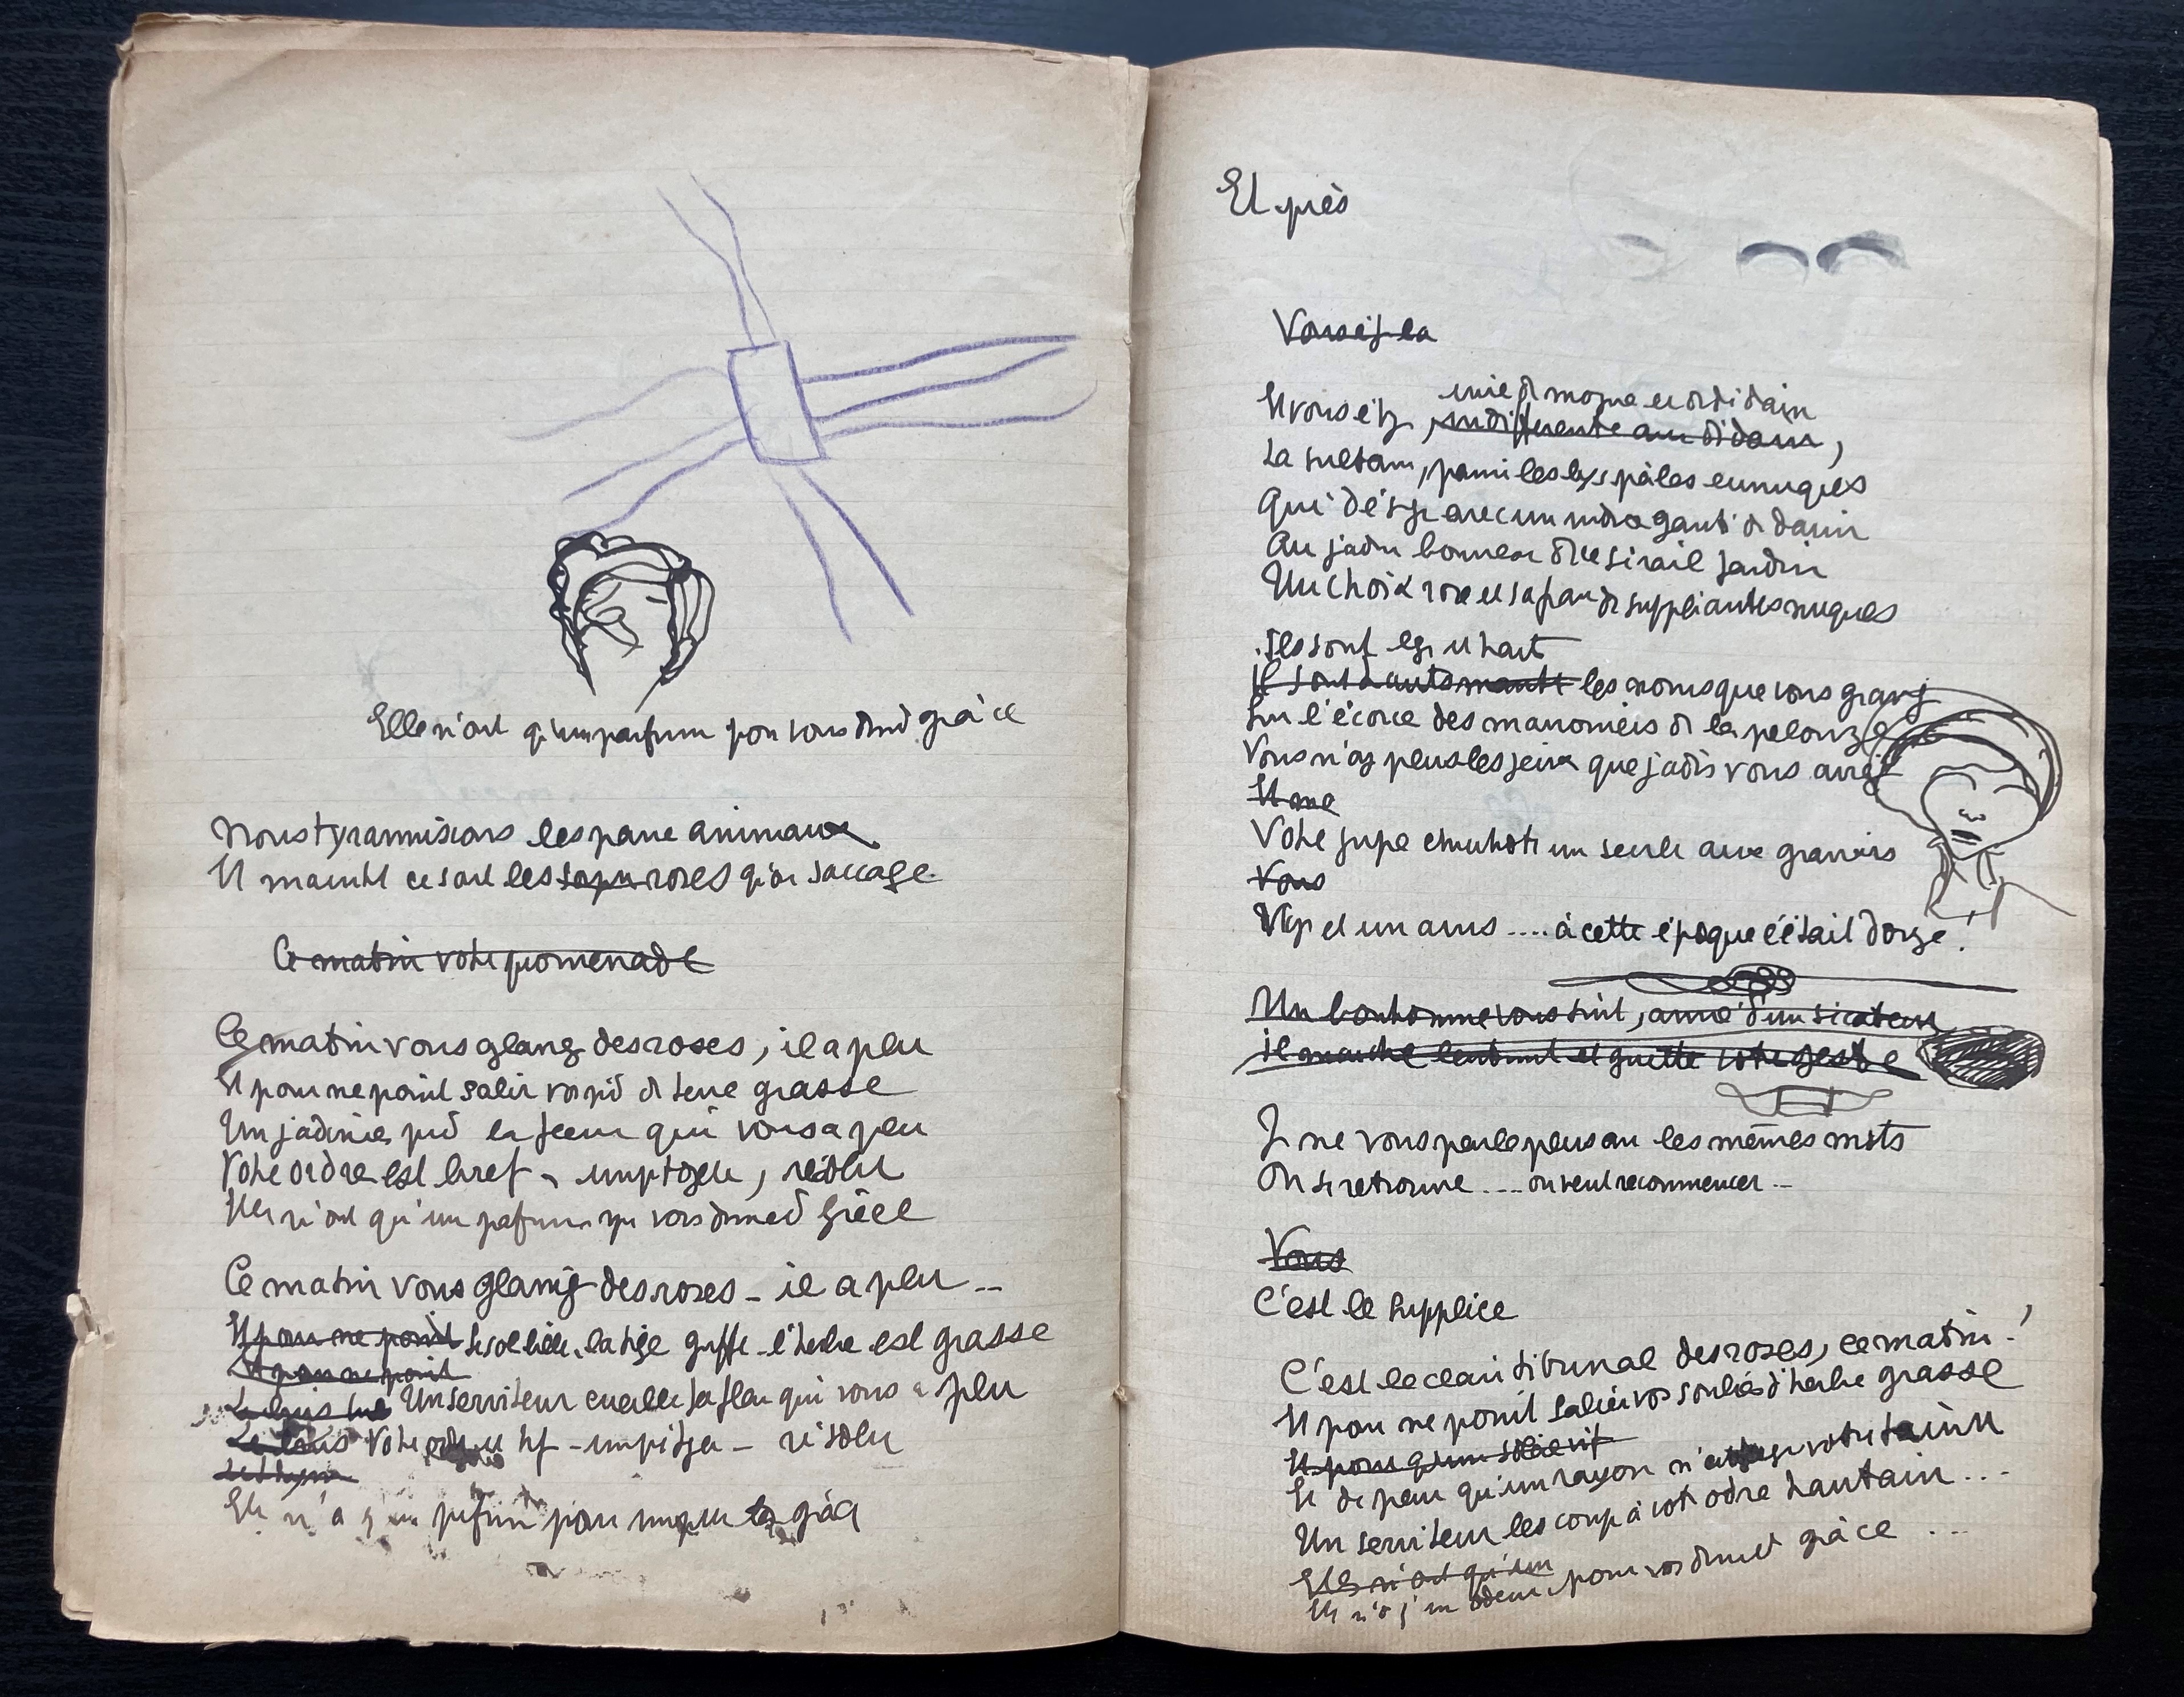 Elles n'ont qu'un parfum pour vous demand grâce
Nous tyrannisions les pauvres animaux
Et maintt ce sont les roses qu'on saccage.
Ce matin votre promenade
Ce matin vous glanez des roses, il a plu
Et pour ne point salir vos pieds de terre grasse
Un jardinier prend la fleur qui vous a plu
Votre ordre est bref - impitoyable, résolu
Elles n'ont qu'un parfum pour vous demand grâce
Ce matin vous glanez des roses - il a plu --
Et pour ne point le sol la tige griffe - l'herbe est grasse
Et pour ne point
Un serviteur cueille la fleur qui vous a plu
Votre bref - impitoya - résolu
Elle n'a qu'un parfum pour grâce
Et près
Vous êtes la
unie de morgue et de dédain
Et vous êtes, indifférente au dédain,
La sultane, parmi les lys pâles eunuques
Qui désigne avec un index ganté de daim
Au jardin de ce sérail jardin
Un choix rose et sa peur de suppliantes nuques
Ils sont et haut
les noms que vous gravez
Sur l'écorce des marronniers de la pelouse
Vous n'avez plus les yeux que jadis vous aviez
Et me
Votre jupe chuchote un seule aux graviers
Vous
Vingt et un ans .... à cette époque c'était douze !
Un bonhomme vous suit, armé d'un sécateur
il marche lentement et guette votre geste
Je ne vous parle plus avec les mêmes mots
On se retrouve .... on veut recommencer --
Vous
C'est le supplice
C'est le clair tribunal des roses, ce matin !
Et pour ne point salir vos souliers d'herbe grasse
Et pour qu'un soleil vif
Et de peur qu'un rayon n' votre teint
Un serviteur les coupe à votre ordre hautain ...
Elles n'ont qu'un
Elles n'ont qu'un odeur pour vous demand grâce ...